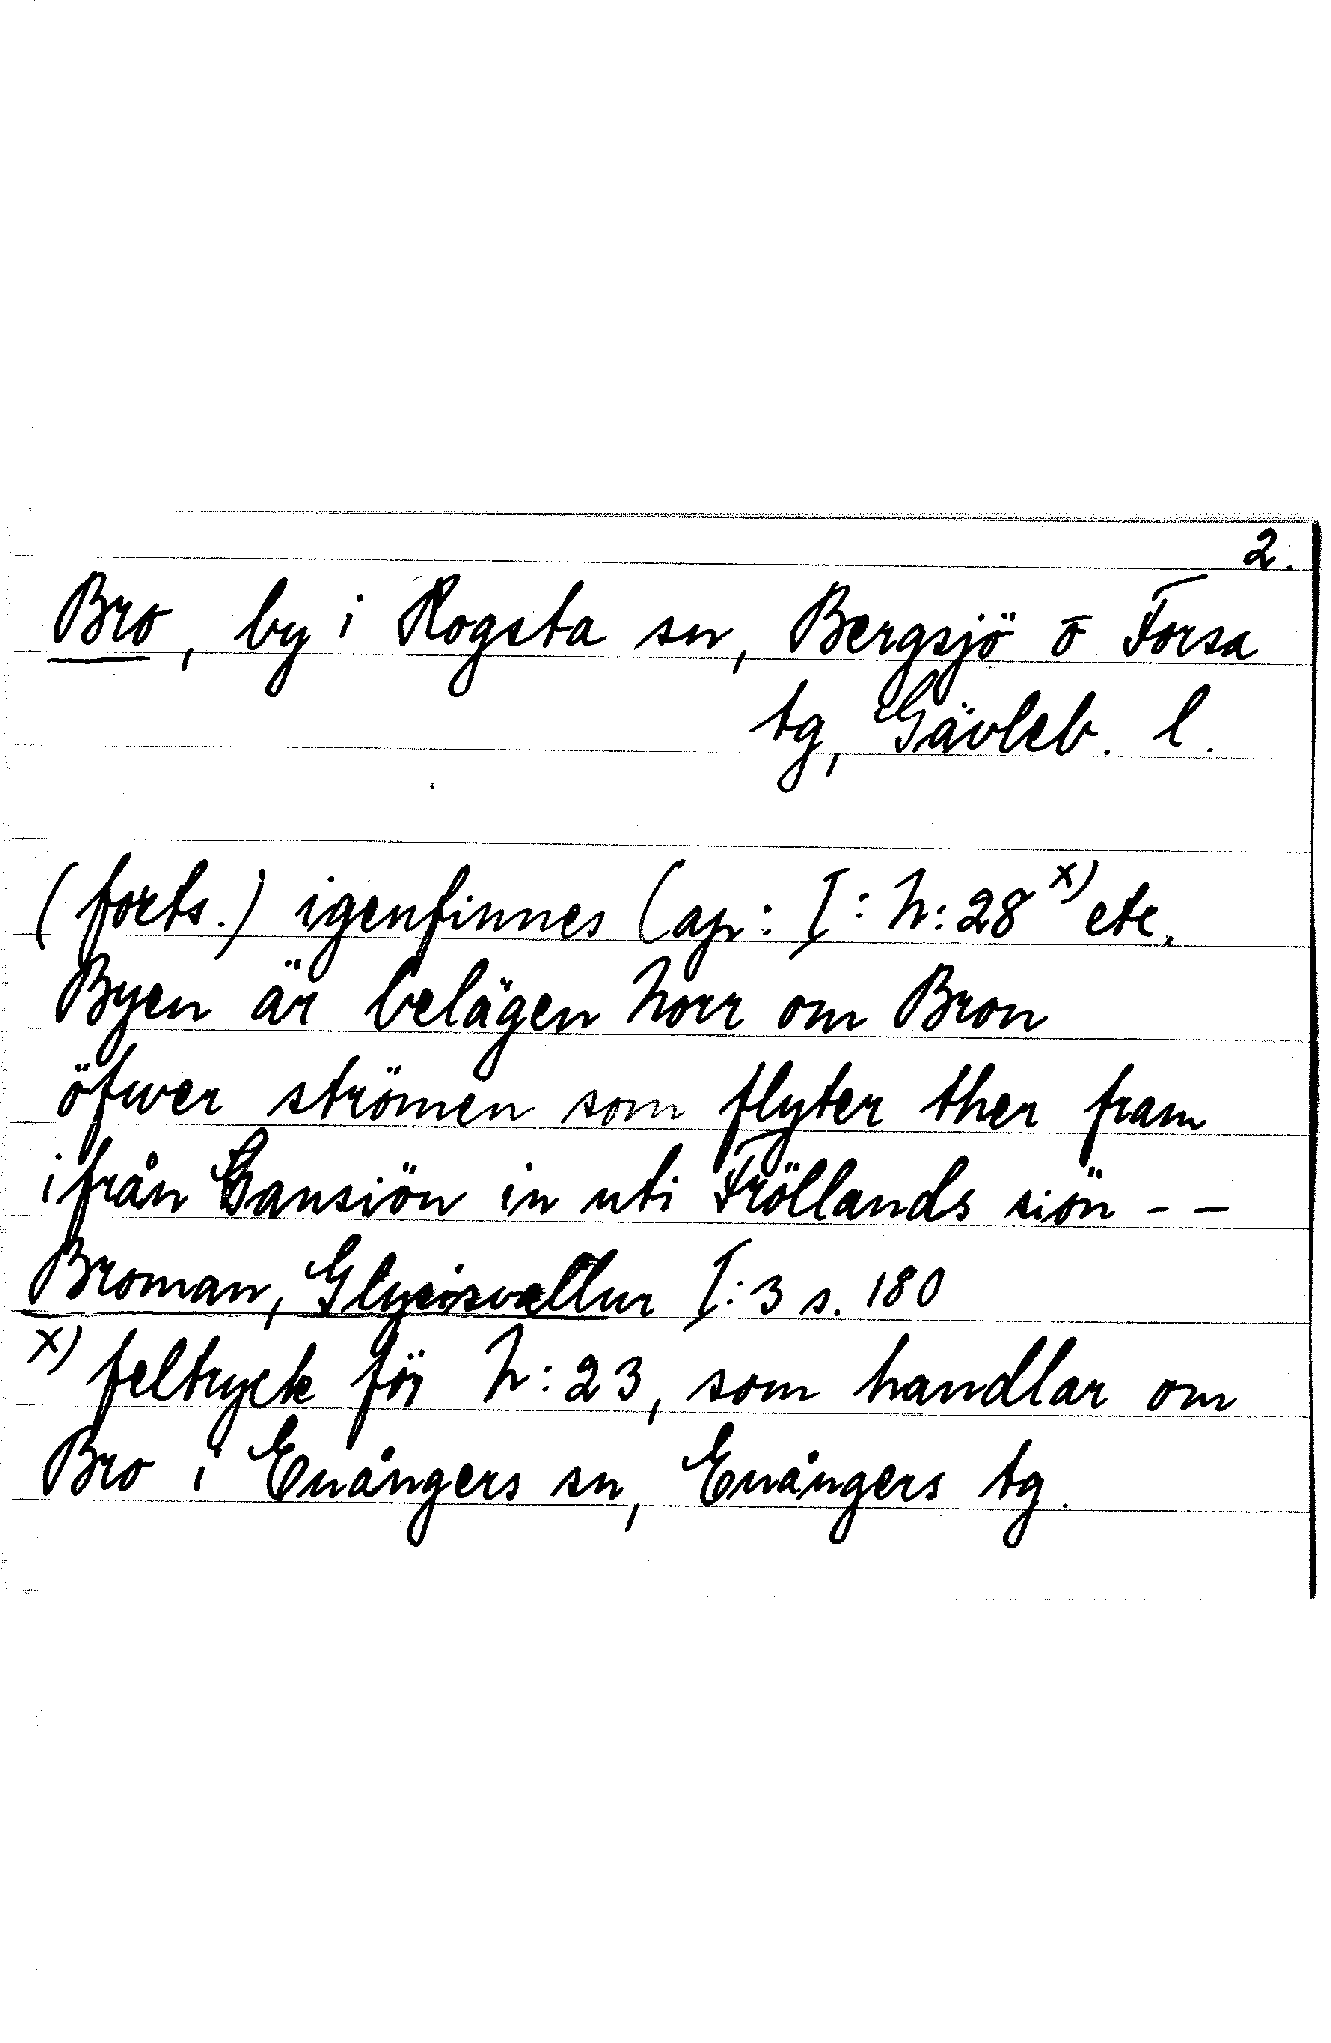 2.
Bro, by i Rogsta sn, Bergsjö o Forsa
tg, Gävleb. l.
(forts.) igenfinnes Cap: I: N:28 x) etc.
Byen är belägen Norr om Bron
öfwer strömen som flyter ther fram
ifrån Gansiön in uti Fröllands siön - -
Broman, Glysisvallur I:3 s. 180
x) feltryck för N:23, som handlar om
Bro i Enångers sn, Enångers tg.